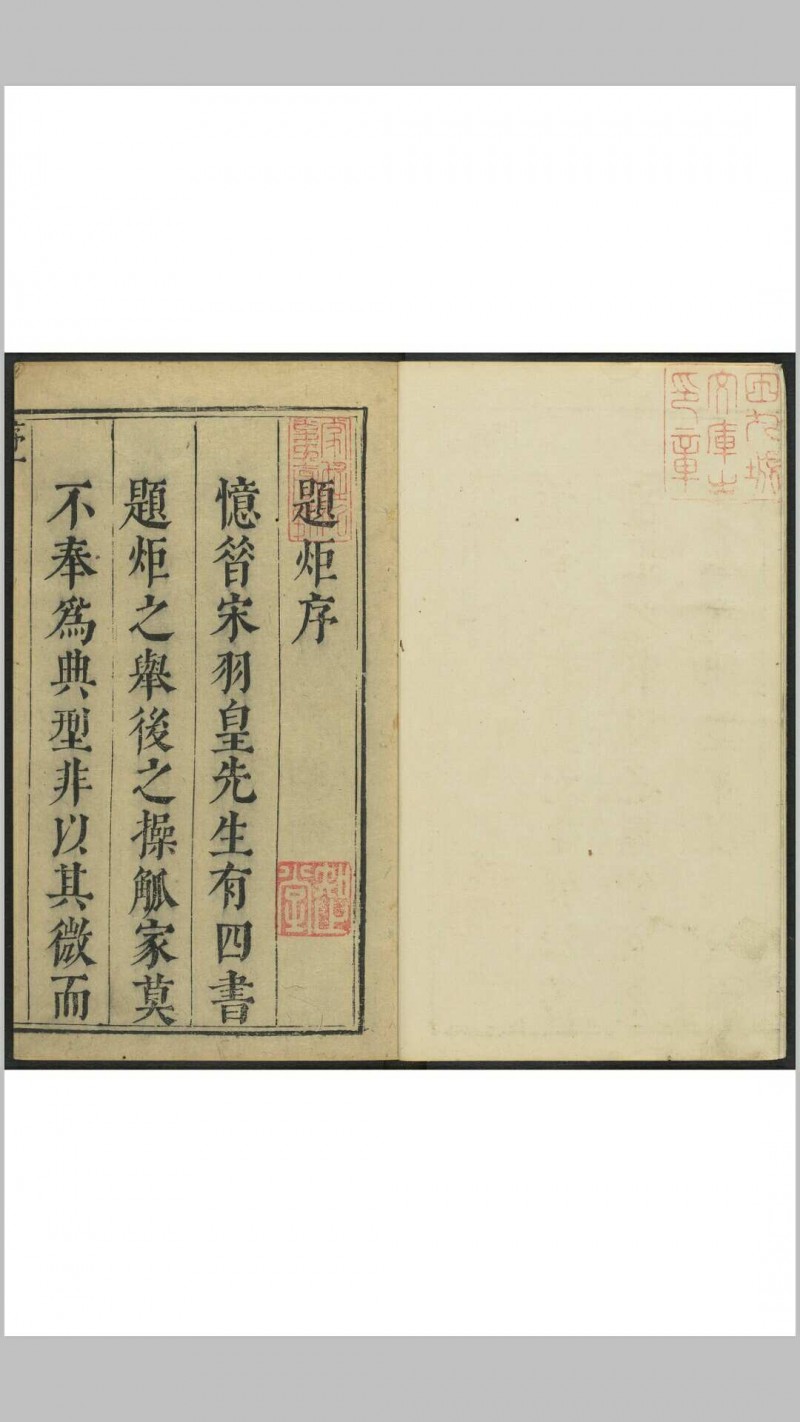 題炬序
憶昝宋羽皇先生有四書
題炬之舉後之操觚家莫
不奉為典型非以其微而
序一